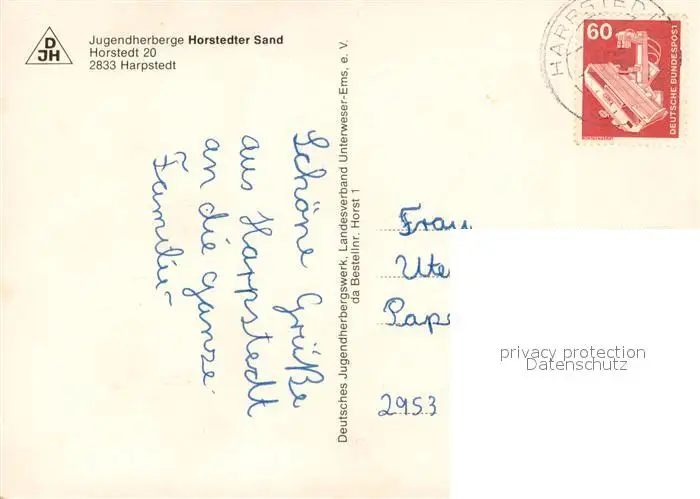 DJH
Jugendherberge Horstedter Sand
Horstedt 20
2833 Harpstedt
Schöne Grüße
aus Harpstedt
an die ganze
Familie
Deutsches Jugendherbergswerk, Landesverband Unterweser-Ems, e. V.
da Bestellnr. Horst 1
HARPSTEDT
60
DEUTSCHE BUNDESPOST
Frau
Ute
2953
privacy protection
Datenschutz